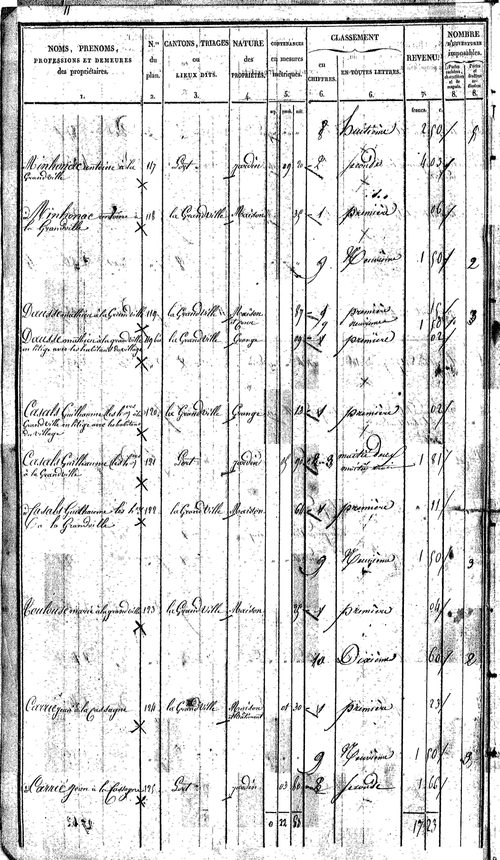 NOMS, PRENOMS,
PROFESSIONS ET DEMEURES
des propriétaires.
1.
N.os
du
plan.
2.
CANTONS, TRIAGES
ou
LIEUX DITS.
3.
NATURE
des
PROPRIÉTÉS.
4.
CONTENANCES
en mesures
métriques.
5.
CLASSEMENT
en
CHIFFRES.
6.
EN TOUTES LETTRES.
6.
REVENU.
7.
NOMBRE
D'OUVERTURES
imposables.
8.
8.
francs. c.
8 huitième 2 50 5
Minhonac antoine à la
Grandville
117 Port jardin 29 20 2 seconde 4 03
Minhonac antoine à
la Grandville
118 la Grandville Maison 35 1 première 06
9 Neuvième 1 50 2
Dausse mathieu à la Grandville 119 la Grandville Maison
et cour
87 1 première 15
9 neuvième 1 50 3
Dausse mathieu à la grandville
en litige avec les habitants du village
119 bis la Grandville Grange 09 1 première 02
Casals Guilhaume les hers à la
Grandville en litige avec les habitans
du village
120 la Grandville Grange 13 1 première 02
Casals Guilhaume les hers
à la Grandville
121 Port jardin 2-3 moitié deux
moitié trois
1 81
Casals Guilhaume les hers
à la Grandville
122 la Grandville Maison 61 1 première 11
9 Neuvième 1 50 3
Toulouse marie à la grandville 123 la Grandville Maison 25 1 première 04
10 Dixième 60 2
Carrié jean à la Cassagne 124 la Grandville Maison
et bâtiment
01 30 1 première 23
9 Neuvième 1 50 3
Carrié jean à la Cassagne 125 Port jardin 03 2 seconde 1 66
0 22 83 17 23